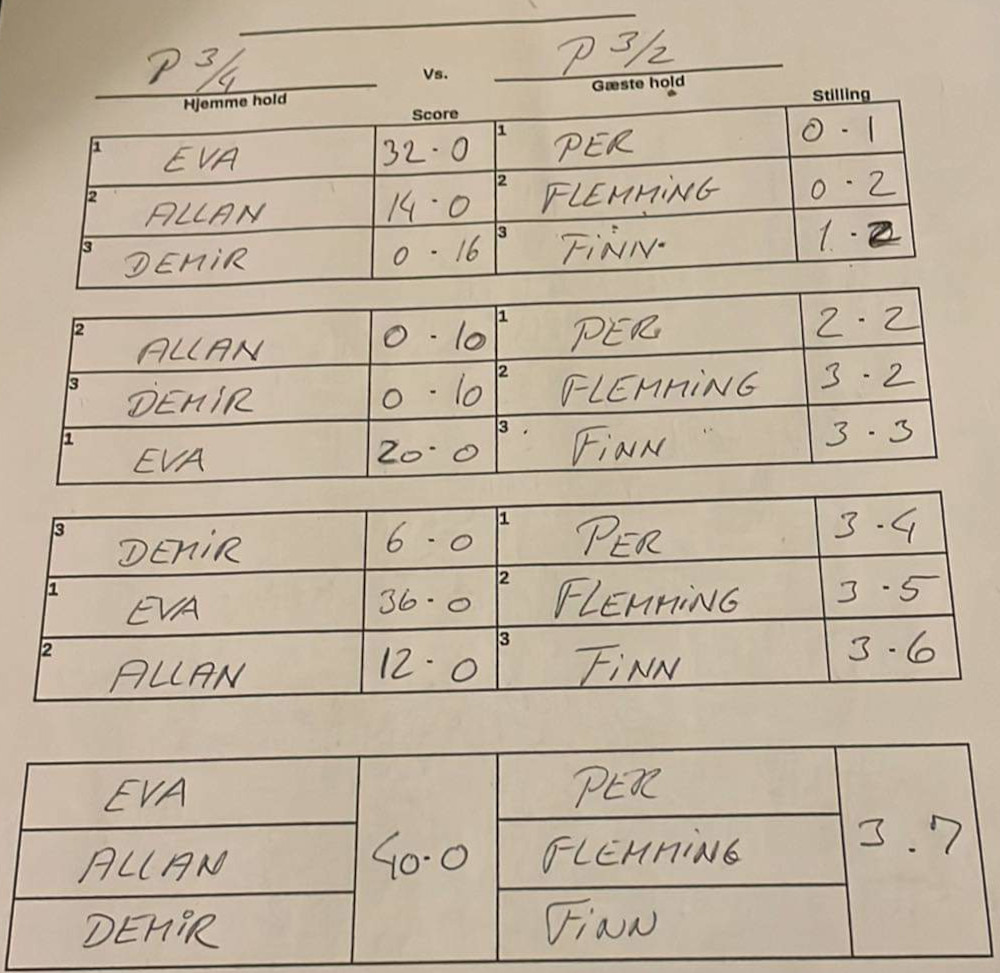 P 3/4 Vs. P 3/2
Hjemme hold Gæste hold
Score Stilling
1 EVA 32·0 1 PER 0·1
2 ALLAN 14·0 2 FLEMMING 0·2
3 DEMIR 0·16 3 FINN 1·2
2 ALLAN 0·10 1 PER 2·2
3 DEMIR 0·10 2 FLEMMING 3·2
1 EVA 20·0 3 FINN 3·3
3 DEMIR 6·0 1 PER 3·4
1 EVA 36·0 2 FLEMMING 3·5
2 ALLAN 12·0 3 FINN 3·6
EVA PER
ALLAN 40·0 FLEMMING 3.7
DEMIR FINN